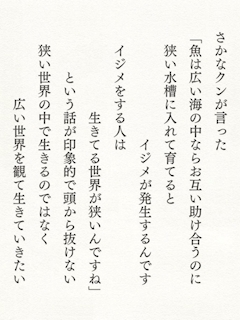 さかなクンが言った
「魚は広い海の中ならお互い助け合うのに
狭い水槽に入れて育てると
イジメが発生するんです
イジメをする人は
生きてる世界が狭いんですね」
という話が印象的で頭から抜けない
狭い世界の中で生きるのではなく
広い世界を観て生きていきたい